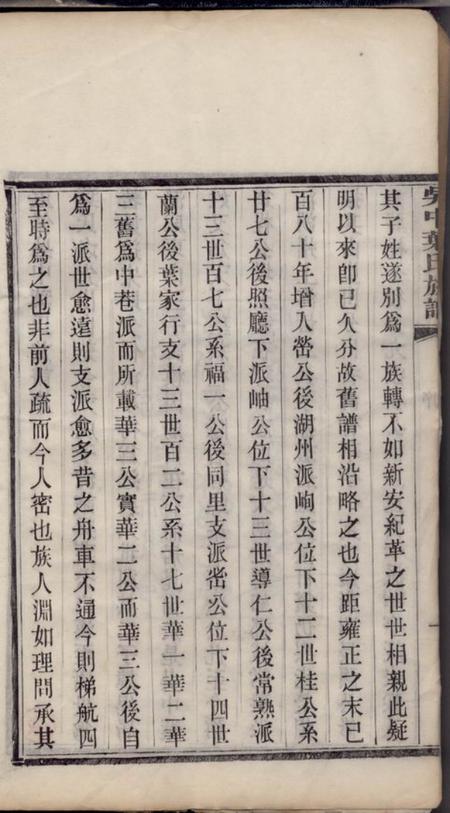 吳中葉氏族譜
其子姓遂別爲一族轉不如新安紀革之世世相親此疑
明以來卽已久分故舊譜相沿略之也今距雍正之末已
百八十年增入嵤公後湖州派岣公位下十二世桂公系
廿七公後照廳下派岫公位下十三世導仁公後常熟派
十三世百七公系福一公後同里支派嵤公位下十四世
蘭公後葉家行支十三世百二公系十七世華一華二華
三舊爲中巷派而所載華三公實華二公而華三公後自
爲一派世愈遠則支派愈多昔之舟車不通今則梯航四
至時爲之也非前人疏而今人密也族人淵如理問承其